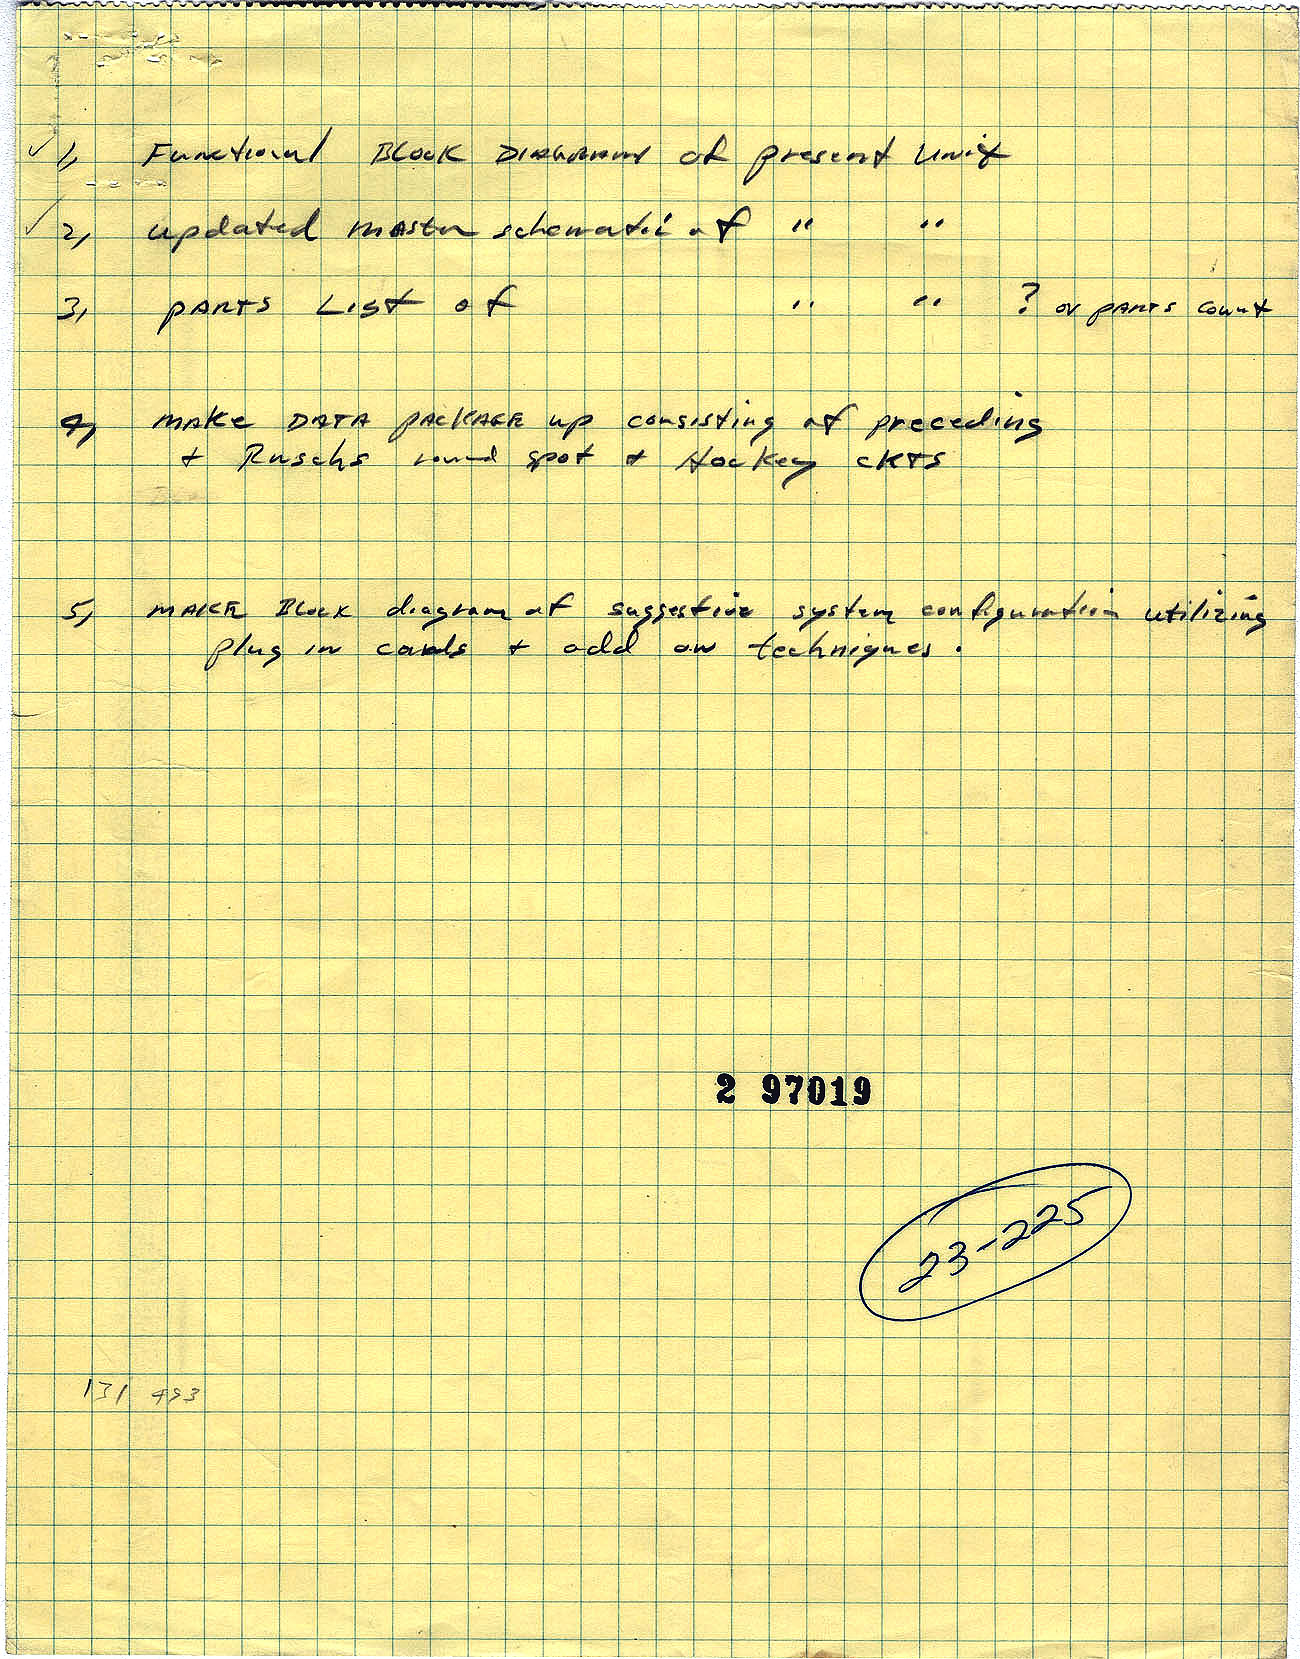 ✓ 1, Functional BLOCK DIAGRAM of present Unit
✓ 2, updated master schematic of " "
3, PARTS List of " " ? or PARTS count
4, MAKE DATA PACKAGE up consisting of preceding
+ Ruschs round spot + Hockey CKTS
5, MAKE Block diagram of suggestive system configuration utilizing
plug in cards + add on techniques.
2 97019
23-225
131 493